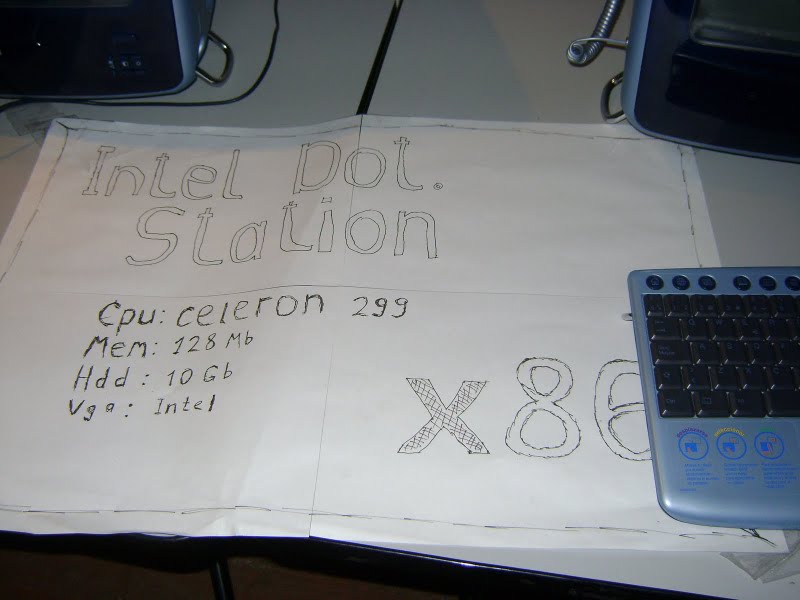 Intel Dot.
Station
Cpu: celeron 299
Mem: 128 Mb
Hdd: 10 Gb
Vga: Intel
x86